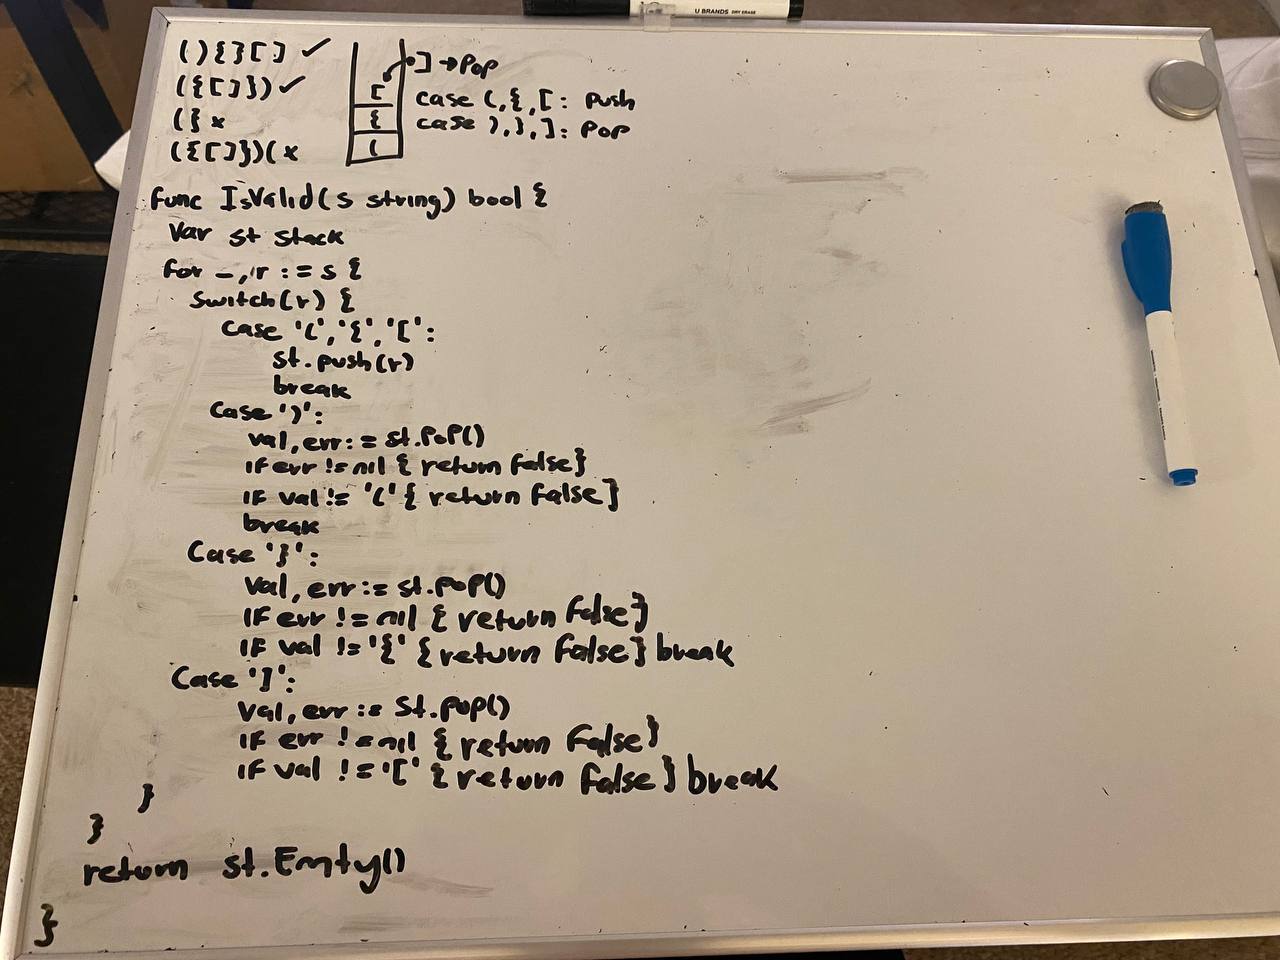 U BRANDS DRY ERASE
(){}[] ✓
({[]}) ✓
(} x
({[]})( x
[
{
(
] → Pop
case (,{,[: push
case ),},]: pop
func IsValid(s string) bool {
var st stack
for _, r := s {
switch(r) {
case '(','{','[':
st.push(r)
break
case ')':
val, err := st.pop()
if err != nil { return false}
if val != '(' { return false}
break
case '}':
val, err := st.pop()
if err != nil { return false}
if val != '{' { return false} break
case ']':
val, err := st.pop()
if err != nil { return false}
if val != '[' { return false} break
}
}
return st.Emty()
}